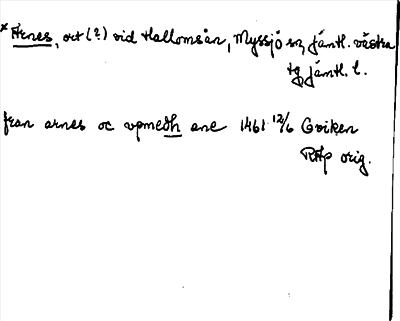 *Årnes, ort (?) vid Hallomsån, Myssjö sn, Jämtl. västra
tg Jämtl. l.
fran arnes oc vpmedh ane 1461 12/6 Oviken
RAp orig.